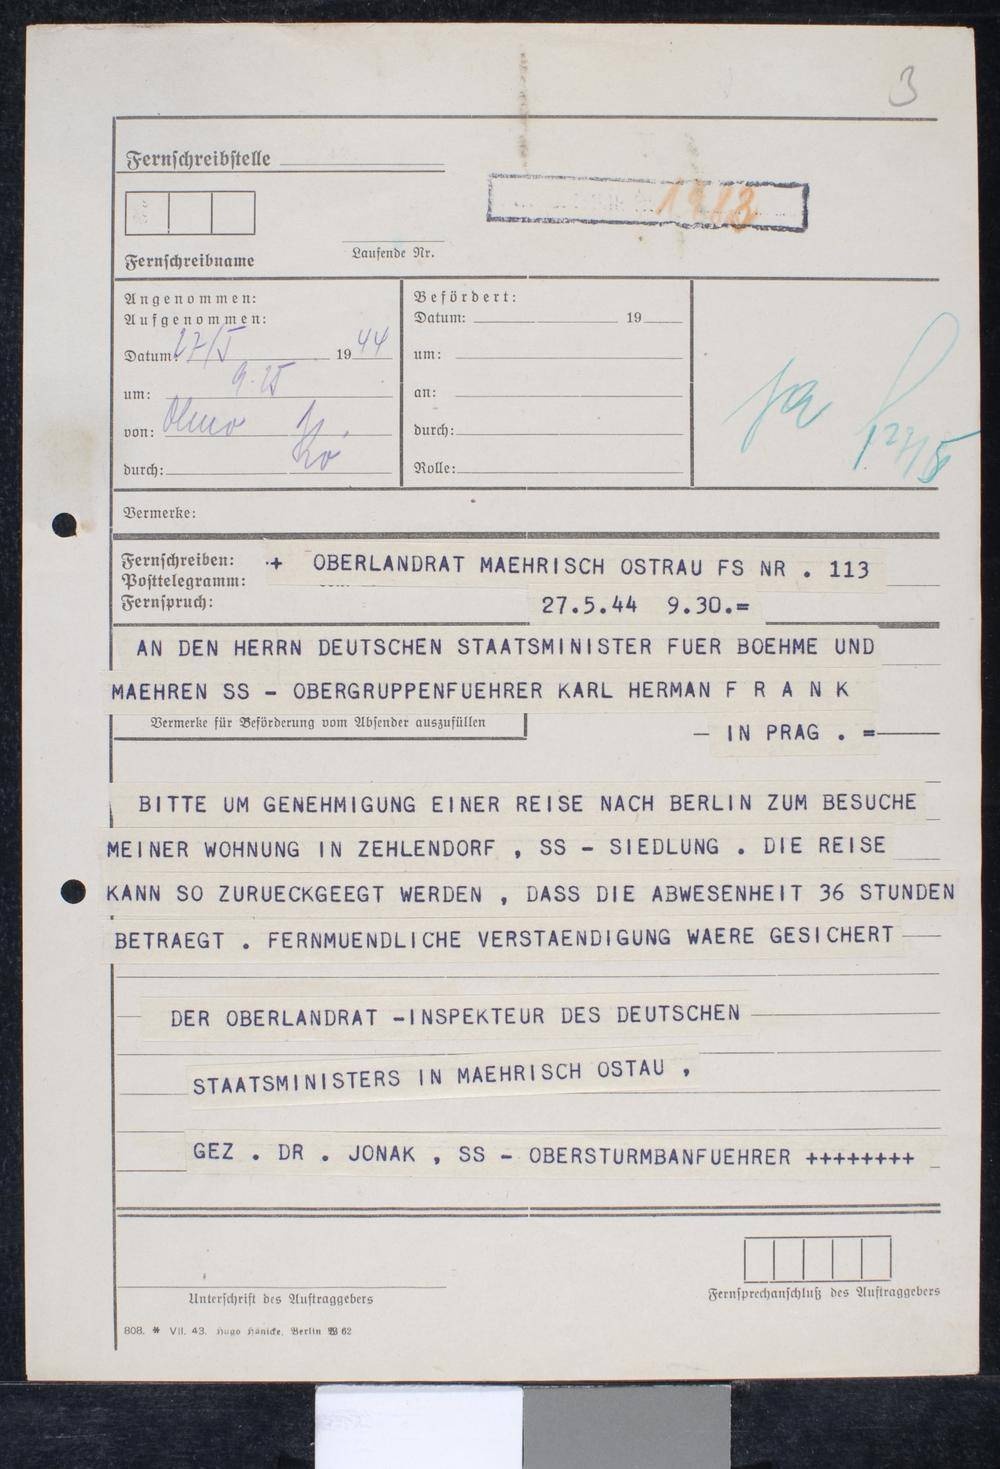 3
Fernschreibstelle
1913
Fernschreibname
Laufende Nr.
Angenommen:
Aufgenommen:
Datum: 27/5 1944
um: 9.25
von:
durch:
Befördert:
Datum: 19
um:
an:
durch:
Rolle:
ja
27/5
Vermerke:
Fernschreiben:
Posttelegramm:
Fernspruch:
+ OBERLANDRAT MAEHRISCH OSTRAU FS NR . 113
27.5.44 9.30.=
AN DEN HERRN DEUTSCHEN STAATSMINISTER FUER BOEHME UND
MAEHREN SS - OBERGRUPPENFUEHRER KARL HERMAN F R A N K
Vermerke für Beförderung vom Absender auszufüllen
- IN PRAG . =
BITTE UM GENEHMIGUNG EINER REISE NACH BERLIN ZUM BESUCHE
MEINER WOHNUNG IN ZEHLENDORF , SS - SIEDLUNG . DIE REISE
KANN SO ZURUECKGEEGT WERDEN , DASS DIE ABWESENHEIT 36 STUNDEN
BETRAEGT . FERNMUENDLICHE VERSTAENDIGUNG WAERE GESICHERT
DER OBERLANDRAT -INSPEKTEUR DES DEUTSCHEN
STAATSMINISTERS IN MAEHRISCH OSTAU ,
GEZ . DR . JONAK , SS - OBERSTURMBANFUEHRER ++++++++
Unterschrift des Auftraggebers
Fernsprechanschluß des Auftraggebers
808. * VII. 43. Hugo Hänicke, Berlin W 62